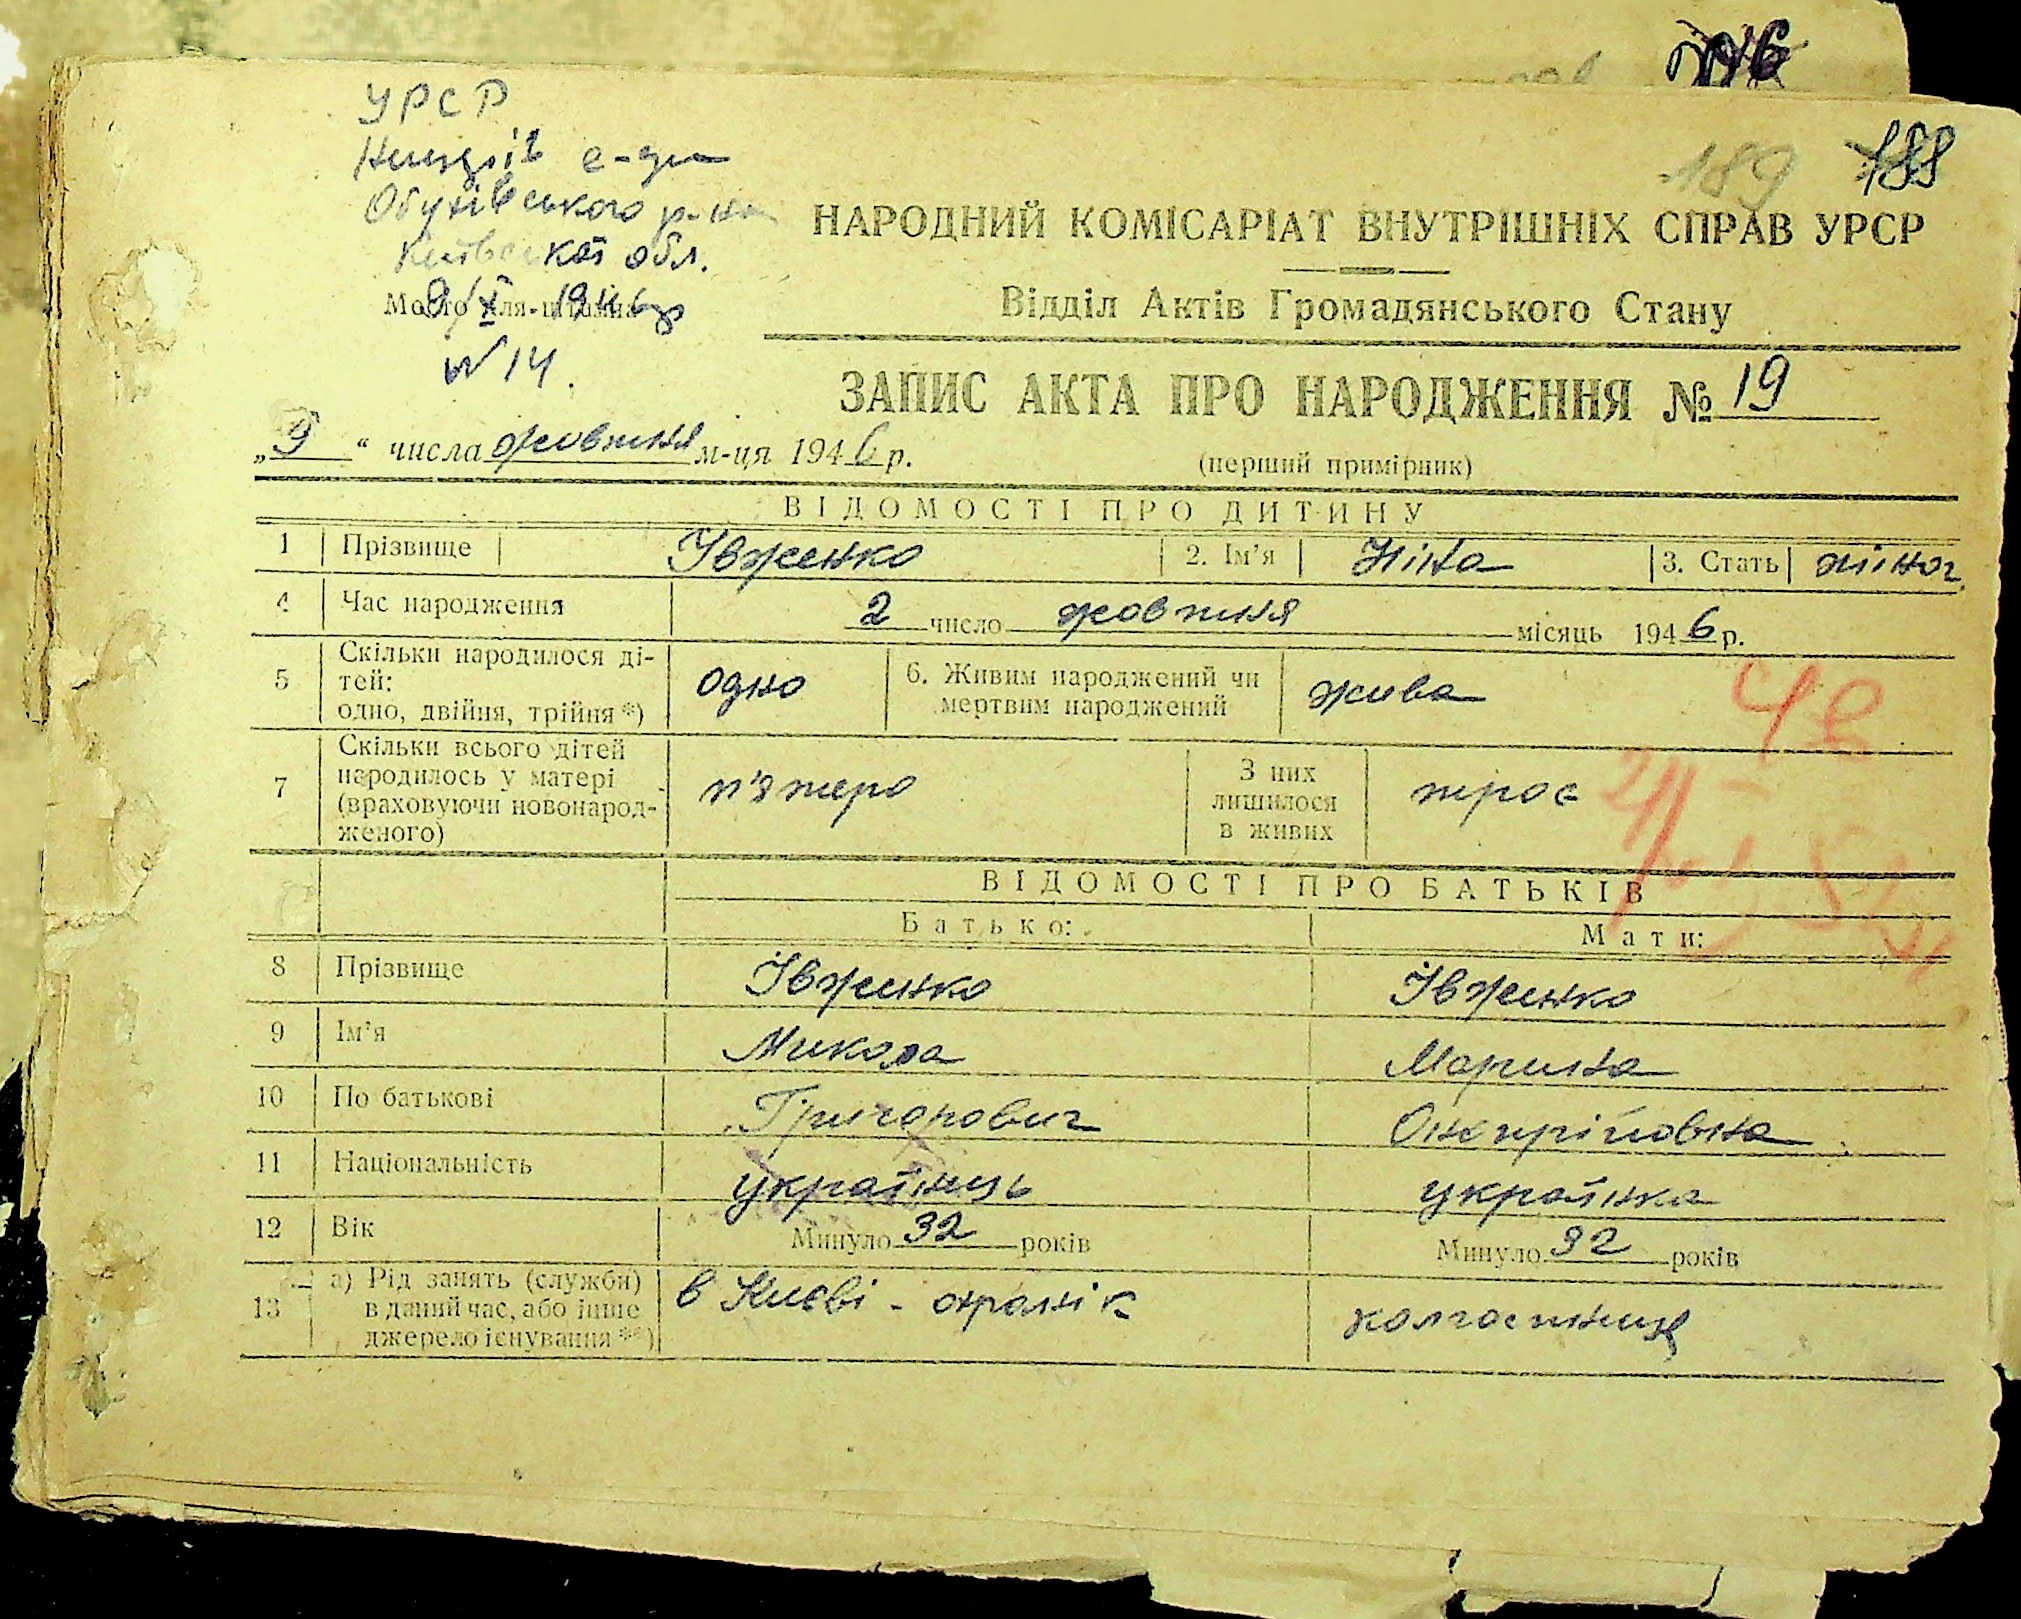 УРСР
Обухівського р-на
Київської обл.
Місце для штампа
9/X 1946 р
№ 14.
189 188
НАРОДНИЙ КОМІСАРІАТ ВНУТРІШНІХ СПРАВ УРСР
Відділ Актів Громадянського Стану
ЗАПИС АКТА ПРО НАРОДЖЕННЯ № 19
„9“ числа жовтня м-ця 1946 р.
(перший примірник)
ВІДОМОСТІ ПРО ДИТИНУ
1 Прізвище Івженко 2. Ім’я Ніна 3. Стать жіноч
4 Час народження 2 число жовтня місяць 1946 р.
5 Скільки народилося ді-
тей:
одно, двійня, трійня *) одно 6. Живим народжений чи
мертвим народжений жива
7 Скільки всього дітей
народилось у матері
(враховуючи новонарод-
женого) п'ятеро З них
лишилося
в живих троє
ВІДОМОСТІ ПРО БАТЬКІВ
Батько: Мати:
8 Прізвище Івженко Івженко
9 Ім’я Микола Марина
10 По батькові Григорович Онопріївна
11 Національність українець українка
12 Вік Минуло 32 років Минуло 32 років
13 а) Рід занять (служби)
в даний час, або інше
джерело існування **) в Києві - охранік колгоспниця